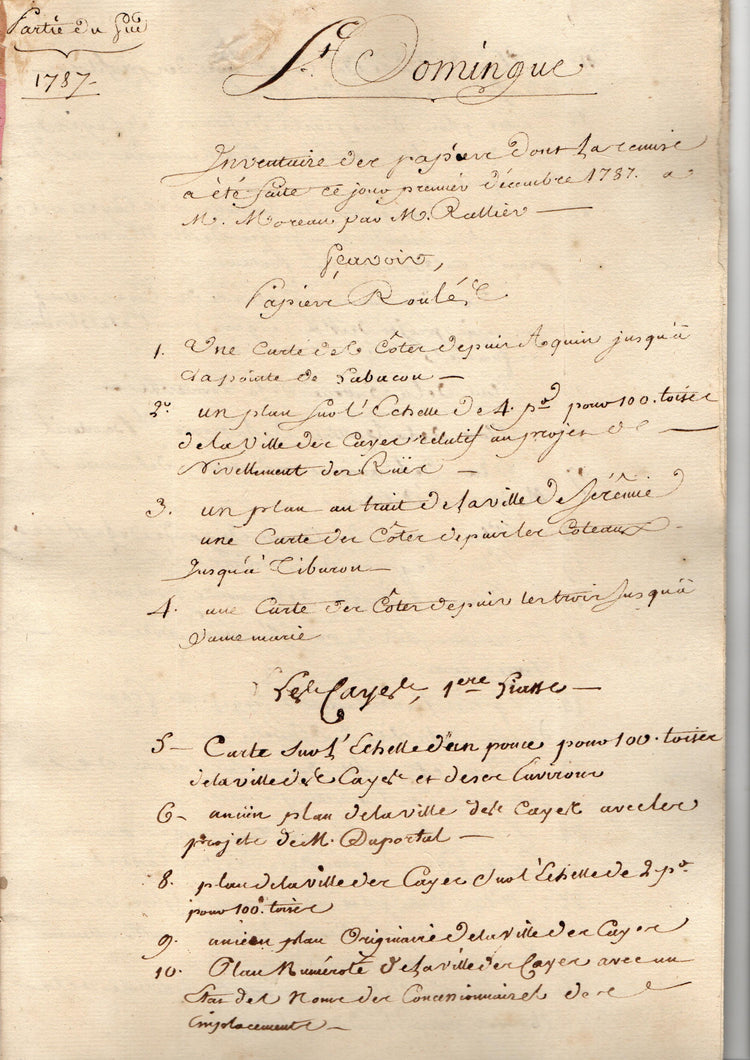 Partie du Sud
1787
St Domingue
Inventaire des papiers dont la remise
a été faite ce jour premier décembre 1787. a
M. Moreau par M. Rallier
Sçavoir,
Papiers Roulés
1. Une Carte des Côtes depuis Aquin jusqu'à
la pointe de Labacou
2° un plan sur l'Echelle de 4. po pour 100. toises
de la ville des Cayes relatif au projet de
Nivellement des Rües
3. un plan au trait de la ville de Jérémie
une Carte des Côtes depuis les Coteaux
Jusqu'à Tiburon
4. une Carte des Côtes depuis les Irois jusqu'à
Damemarie
Les Cayes, 1ere Liasse
5 Carte sur l'Echelle d'un pouce pour 100. toises
de la ville des Cayes et de ses Environs
6 ancien plan de la ville des Cayes avec les
projets de M. Duportal
8. plan de la ville des Cayes sur l'Echelle de 2 po
pour 100. toises
9. ancien plan Originaire de la ville des Cayes
10. Plan Numéroté de la ville des Cayes avec un
Etat des Noms des Concessionnaires de ces
Emplacements